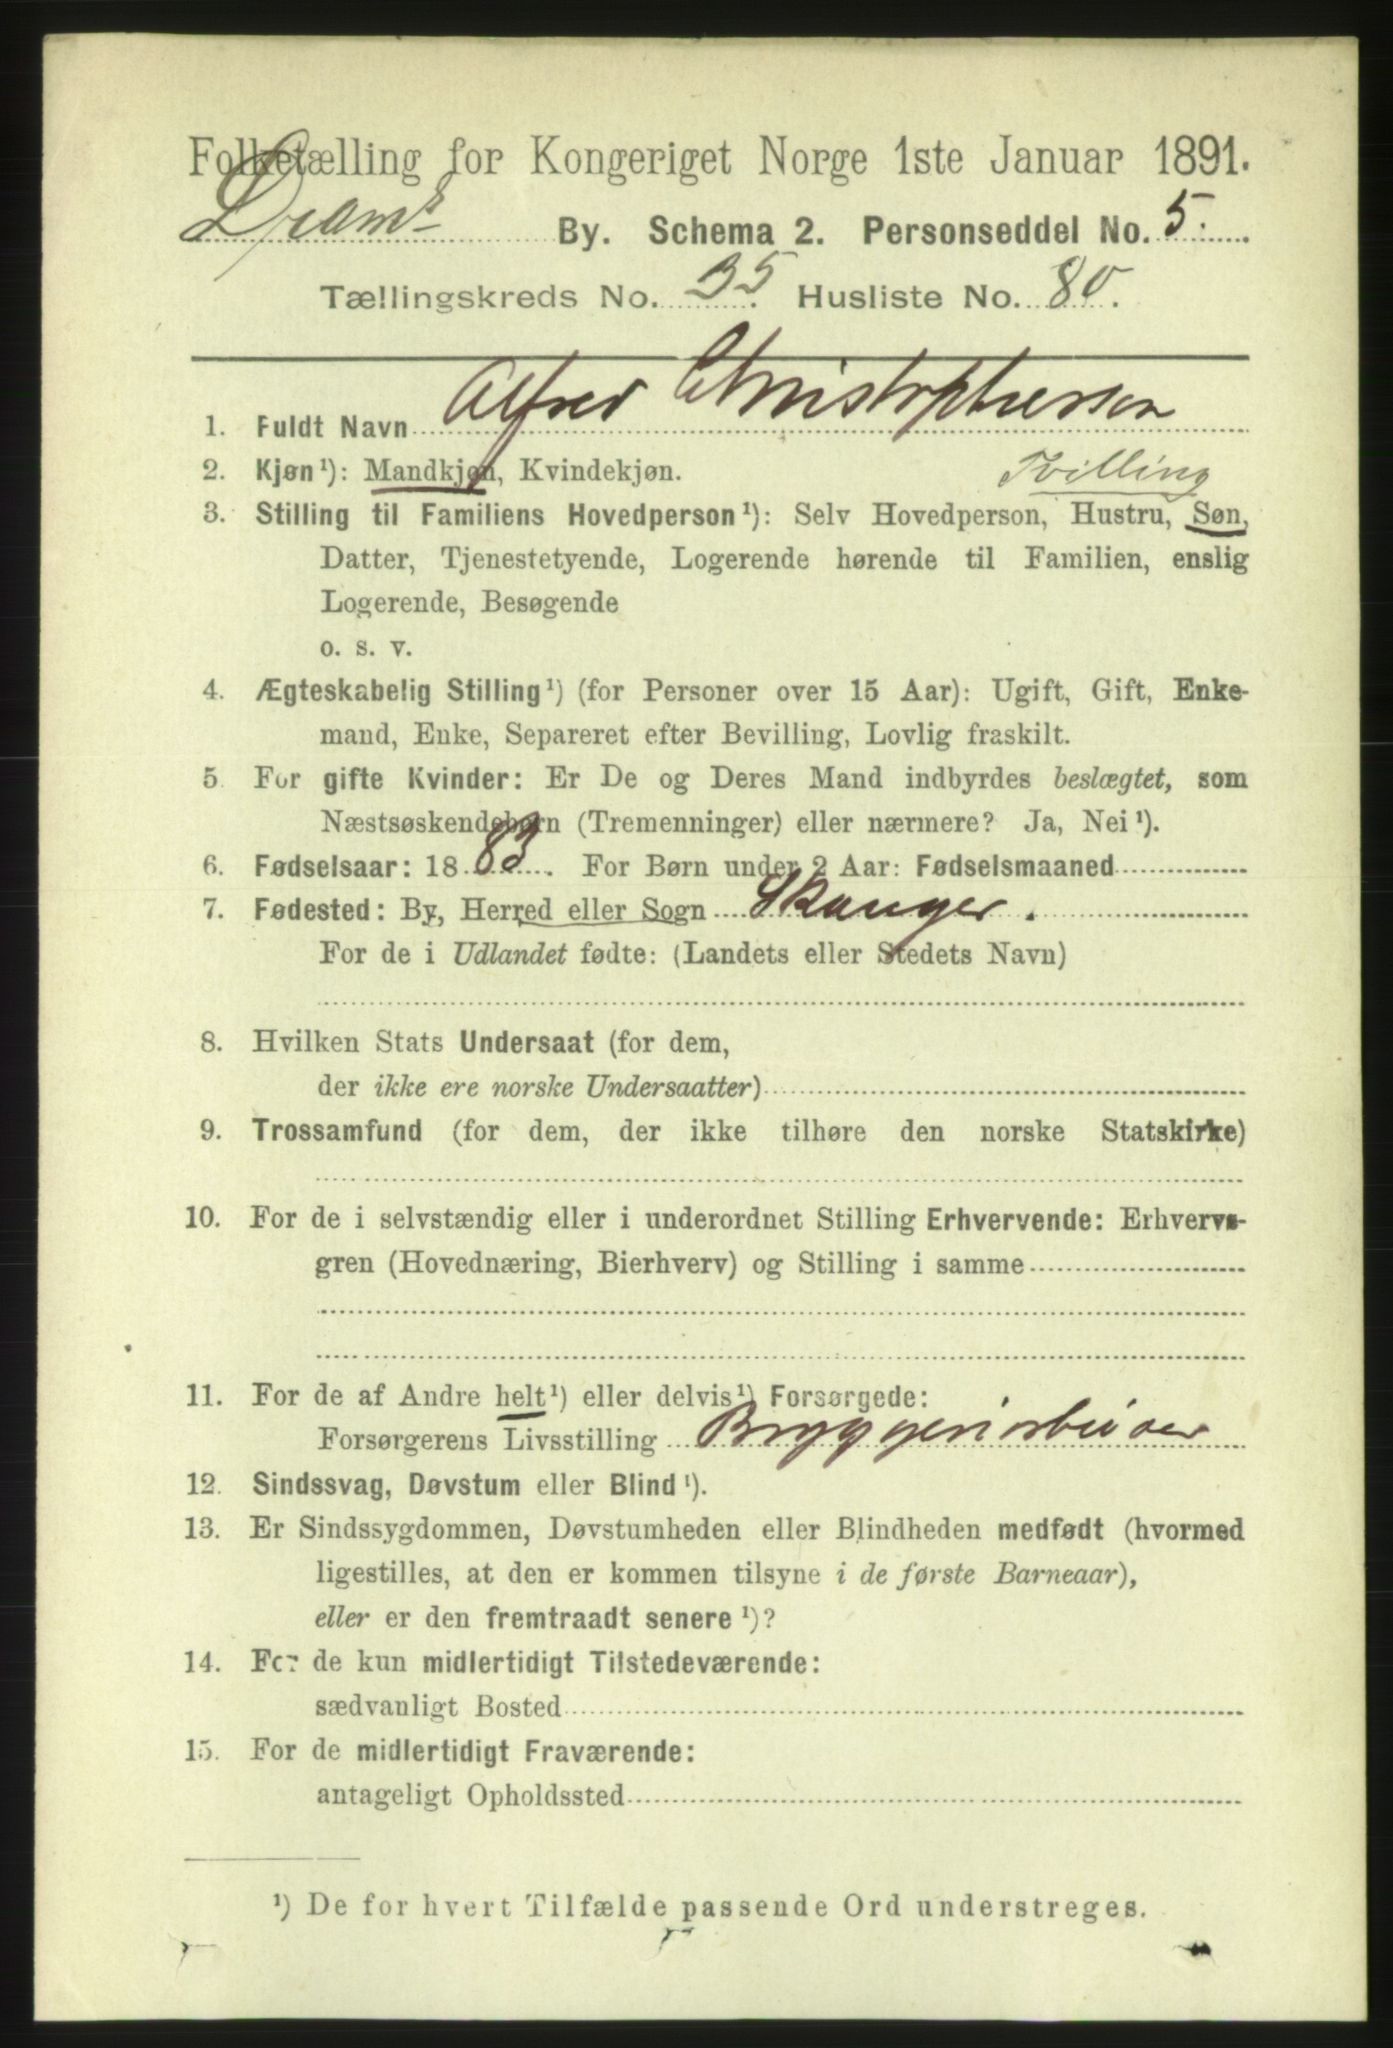 Folketælling for Kongeriget Norge 1ste Januar 1891.
Dramn By. Schema 2. Personseddel No. 5.
Tællingskreds No. 35. Husliste No. 80.
1. Fuldt Navn Alfred Christophersen
2. Kjøn¹): Mandkjøn, Kvindekjøn. Tvilling
3. Stilling til Familiens Hovedperson¹): Selv Hovedperson, Hustru, Søn,
Datter, Tjenestetyende, Logerende hørende til Familien, enslig
Logerende, Besøgende
o. s. v.
4. Ægteskabelig Stilling¹) (for Personer over 15 Aar): Ugift, Gift, Enke-
mand, Enke, Separeret efter Bevilling, Lovlig fraskilt.
5. For gifte Kvinder: Er De og Deres Mand indbyrdes beslægtet, som
Næstsøskendebørn (Tremenninger) eller nærmere? Ja, Nei¹).
6. Fødselsaar: 1883. For Børn under 2 Aar: Fødselsmaaned
7. Fødested: By, Herred eller Sogn Skouger.
For de i Udlandet fødte: (Landets eller Stedets Navn)
8. Hvilken Stats Undersaat (for dem,
der ikke ere norske Undersaatter)
9. Trossamfund (for dem, der ikke tilhøre den norske Statskirke)
10. For de i selvstændig eller i underordnet Stilling Erhvervende: Erhvervs-
gren (Hovednæring, Bierhverv) og Stilling i samme
11. For de af Andre helt¹) eller delvis¹) Forsørgede:
Forsørgerens Livsstilling Bryggeriarbeider
12. Sindssvag, Døvstum eller Blind¹).
13. Er Sindssygdommen, Døvstumheden eller Blindheden medfødt (hvormed
ligestilles, at den er kommen tilsyne i de første Barneaar),
eller er den fremtraadt senere¹)?
14. For de kun midlertidigt Tilstedeværende:
sædvanligt Bosted
15. For de midlertidigt Fraværende:
antageligt Opholdssted
¹) De for hvert Tilfælde passende Ord understreges.